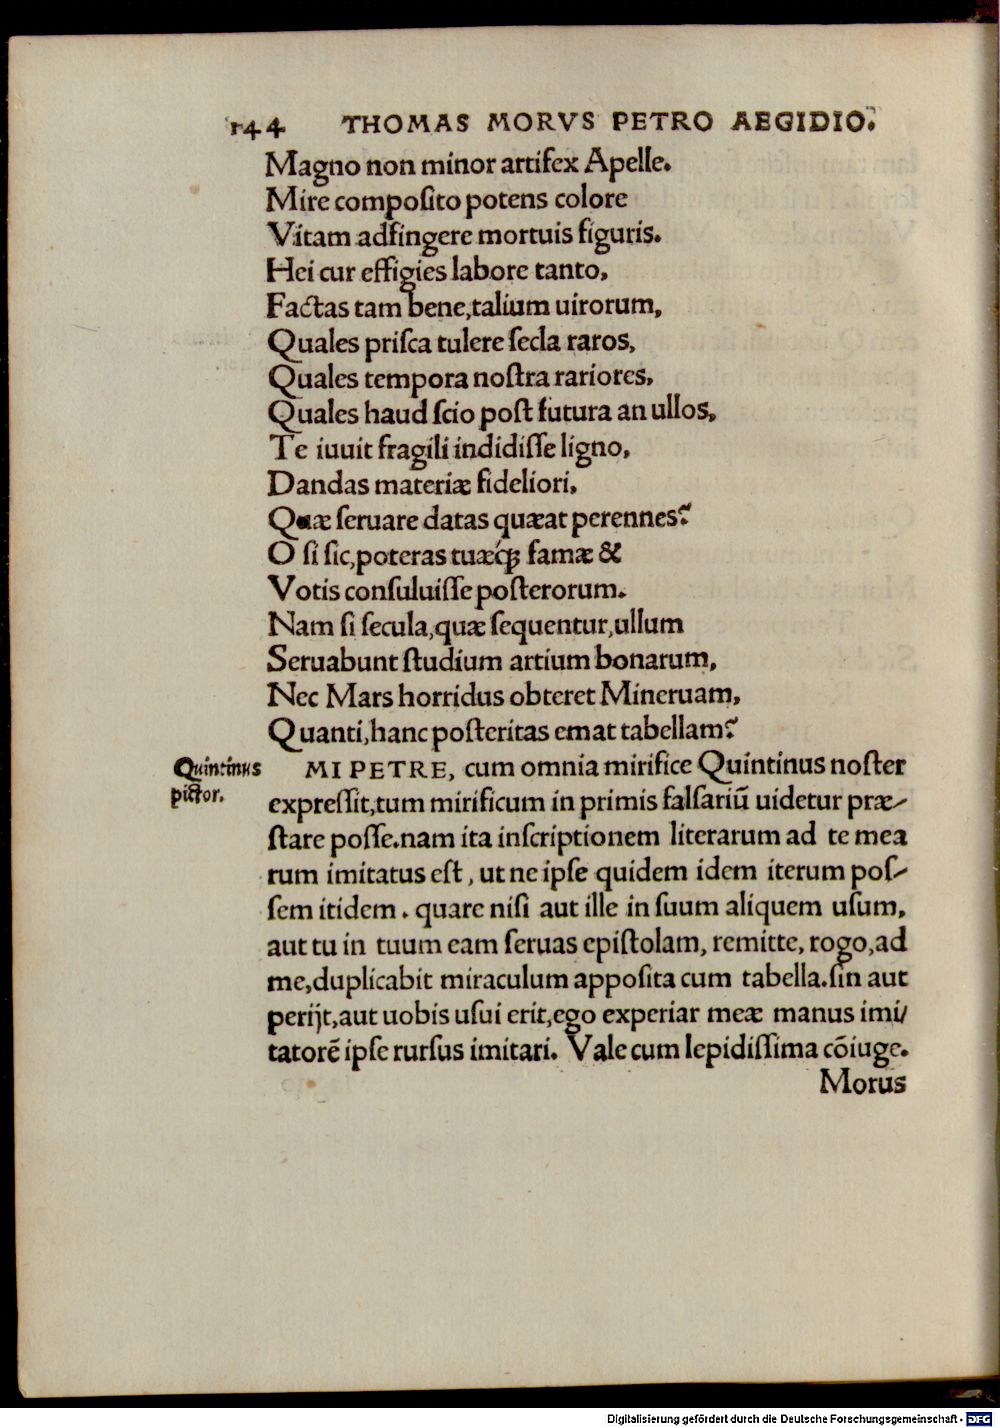 144 THOMAS MORVS PETRO AEGIDIO.
Magno non minor artifex Apelle.
Mire compoſito potens colore
Vitam adfingere mortuis figuris.
Hei cur effigies labore tanto,
Factas tam bene, talium uirorum,
Quales priſca tulere ſecla raros,
Quales tempora noſtra rariores,
Quales haud ſcio poſt futura an ullos,
Te iuuit fragili indidiſſe ligno,
Dandas materiæ fideliori,
Quæ ſeruare datas quæat perennes?
O ſi ſic, poteras tuæq́ꝫ famæ &
Votis conſuluiſſe poſterorum.
Nam ſi ſecula, quæ ſequentur, ullum
Seruabunt ſtudium artium bonarum,
Nec Mars horridus obteret Mineruam,
Quanti, hanc poſteritas emat tabellam?
Quintinus
pictor.
MI PETRE, cum omnia mirifice Quintinus noſter
expreſſit, tum mirificum in primis falſariū uidetur præ-
ſtare poſſe. nam ita inſcriptionem literarum ad te mea
rum imitatus eſt, ut ne ipſe quidem idem iterum poſ-
ſem itidem. quare niſi aut ille in ſuum aliquem uſum,
aut tu in tuum eam ſeruas epiſtolam, remitte, rogo, ad
me, duplicabit miraculum appoſita cum tabella. ſin aut
perijt, aut uobis uſui erit, ego experiar meæ manus imi/
tatorē ipſe rurſus imitari. Vale cum lepidiſſima cōiuge.
Morus
Digitalisierung gefördert durch die Deutsche Forschungsgemeinschaft - DFG